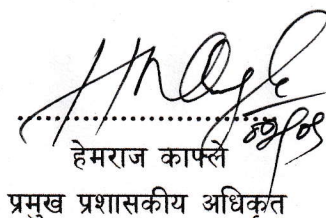 हेमराज काफ्ले
प्रमुख प्रशासकीय अधिकृत